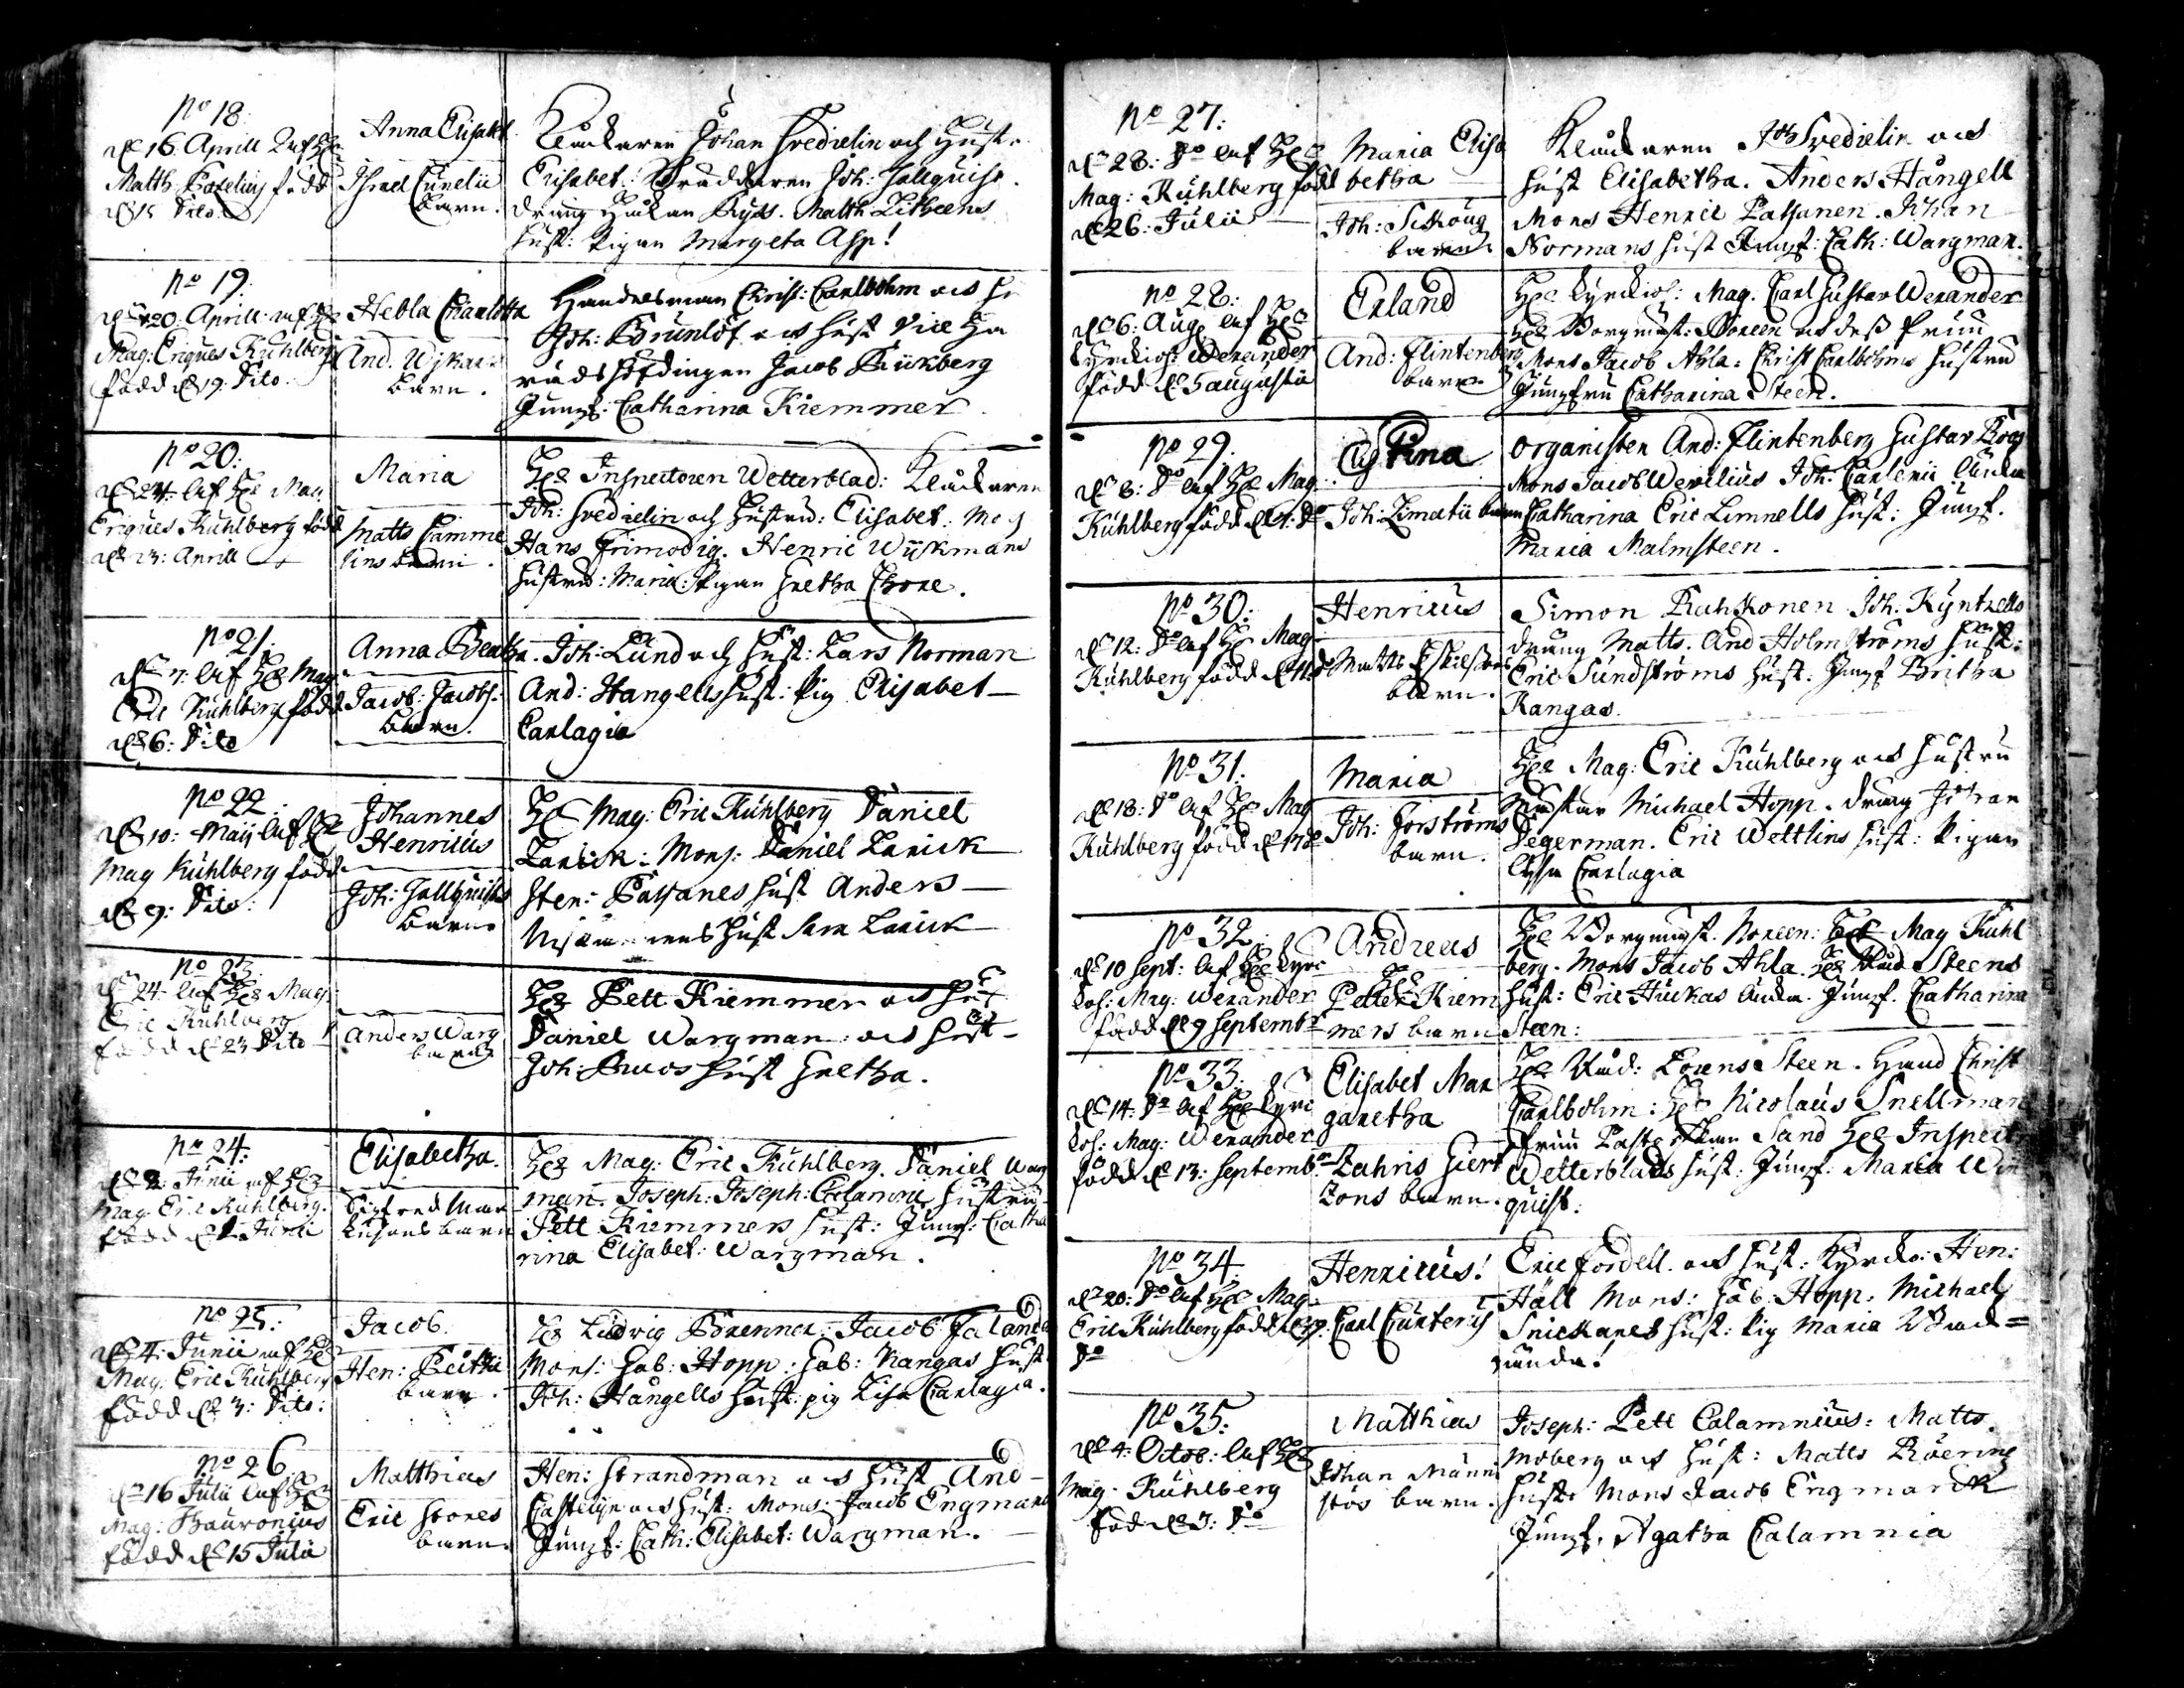 No 18:
d. 16. Aprill af H.
Matth: Paxelius född
d. 15 Dito.
Anna Elisabet
Israel Cunelii
barn.
Klåckaren Johan Svedrelin och Hust.
Elisabet: Skräddaren Joh: Hallquist.
dräng Håkan Matth:
Hust: Pigan Margeta Asp!
No 19:
d. 20: Aprill af H.
Mag: Ericus Kuhlberg
född d. 19. Dito.
Hebla Charlotta
And. Wikar
barn.
Handelsman Christ: Carlbohm och H
Joh: Brunlöf och Hust Vice Hä
radshöfdingen Jacob Bükberg
Jungf: Catharina Kiemmer.
No 20:
d. 24: af H. Mag
Ericus Kuhlberg född
d. 23: Aprill
Maria
Matts Ramme
lins barn.
H. Inspectoren Wetterblad: Klåckaren
Joh: Svedrelin och Hustru: Elisabet: Mons
Hans Frimodig. Henric Wijkmans
Hustru: Maria: Pigan Gretha Thore.
No 21.
d. 7: af H. Mag.
Eric Kuhlberg född
d. 6: Dito
Anna Beata
Jacob: Jacobs:
barn.
Joh: Lund och Hust: Lars Norman
And: Hangells Hust: Pig Elisabet
Carlagia
No 22
d. 10: Maij af H.
Mag Kuhlberg född
d. 9: Dito:
Johannes
Henricus
Joh: Hallquists
barn
H. Mag: Eric Kuhlberg Daniel
Larick: Mons: Daniel Larick
Hen: Pätsanes Hust Anders
Hust Sara Larick
No 23.
d. 24. af H. Mag:
Eric Kuhlberg
född d. 23 Dito
Anders Warg
barn
H. Pett Kiemmer och Hust
Daniel Wargman och Hust
Joh: Hust Gretha.
No 24:
d. 2: Junii af H.
Mag. Eric Kuhlberg.
född d. 1. Junii
Elisabetha.
Sigfred Mar
barn
H. Mag: Eric Kuhlberg. Daniel Warg
man. Joseph: Joseph: Calamnii Hustru
Pett Kiemmers Hust: Jungf: Catha
rina Elisabet: Wargman.
No 25:
d. 4: Junii af H.
Mag: Eric Kuhlberg
född d. 3: Dito:
Jacob.
Hen:
barn.
H. Ludvig Brenner. Jacob Falander
Mons: Gab: Hopp: Gab: Kangas Hust
Joh: Hångells Hust: pig Lisa Carlagia.
No 26
d. 16 Julii af H.
Mag: Hauronius
född d. 15 Julii
Matthias
Eric Stores
barn.
Hen: Strandman och Hust And
och Hust: Mons: Jacob Engmans
Jungf: Cath: Elisabet: Wargman.
No 27:
d. 28: Do af H.
Mag: Kuhlberg född
d. 26: Julii
Maria Elisa
betha
Joh:
barn
Klåckaren Joh Svedrelin och
Hust Elisabetha. Anders Hångell
Mons Henric Patsanen. Johan
Normans Hust Jungf: Cath: Wargman.
No 28:
d. 6: Aug af H.
Kyrckioh: Wexander
född d. 5 augusti
Erland
And: Flintenberg
barn
H. Kyrckioh: Mag. Carl Gustav Wexander
H. Borgmäst: Noreen och dess Fruu
Mons Jacob Ahla: Christ Carlbohms Hustru
Jungfru Catharina Steen.
No 29.
d. 8: Do af H. Mag.
Kuhlberg född d. 7. Do
Cristina
Joh: Limatii barn
Organisten And: Flintenberg Gustav
Mons Jacob Wexelius Joh: Carlenii änka
Catharina Eric Limnells Hust: Jungf.
Maria Malmsteen.
No 30:
d. 12: Do af H. Mag
Kuhlberg född d. 11 d
Henricus
Matts
barn.
Simon Puhkonen Joh: Kyntzells
dräng Matts. And Holmströms Hust:
Eric Sundströms Hust: Jungf Britha
Kangas.
No 31:
d. 18: Do af H. Mag
Kuhlberg född d. 17
Maria
Joh: Forströms
barn.
H. Mag: Eric Kuhlberg och Hustru
Mästar Michael Hopp. dräng Johan
Segerman. Eric Wettlins Hust: Pigan
Carlagia
No 32.
d. 10 Sept: af H. Kyrc
koh: Mag: Wexander
född d. 9 Septembr
Andreas
H.
Petter Kiem
mers barn
H. Borgmäst. Noreen: H. Mag Kuhl
berg. Mons Jacob Ahla. H. Råd Steens
Hust: Eric Huckas änka. Jungf. Catharina
Steen:
No 33.
d. 14: Do af H. Kyrc
koh: Mag: Wexander
född d. 13: Septembr
Elisabet Mar
garetha
Zachris Giert
zons barn.
H. Råd: Lorens Steen. Hand Christ
Carlbohm: H. Nicolaus Snellman
Fruu Sand H. Inspect
Wetterblads Hust: Jungf: Maria Win
quist:
No 34.
d. 20: Do af H. Mag
Eric Kuhlberg född d. 19.
Do
Henricus!
Carl Gunterus
Eric Fordell och Hust: Kyrcko: Hen:
Häll Mons: Gab. Hopp. Michael
Snickares Hust: Pig Maria
No 35:
d. 4: Octob: af H.
Mag. Kuhlberg
född d. 3: Do
Matthias
Johan Männi
stös barn.
Joseph: Pett Calamnius: Matts.
Moberg och Hust: Matts
Hust: Mons Jacob Engmarck
Jungf. Agatha Calamnia